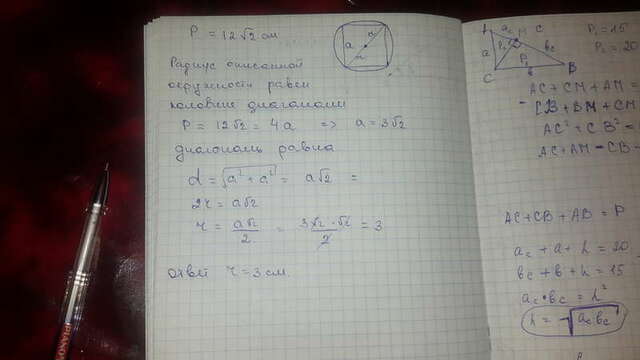 P = 12√2 см
Радиус описанной
окружности равен
половине диагонали
P = 12√2 = 4a => a = 3√2
диагональ равна
d = √(a² + a²) = a√2 =
2r = a√2
r = a√2/2 = 3√2·√2/2 = 3
ответ r = 3 см
a
d
r
a_c
C
b_c
a
b
C
B
P₁ = 15
P₂ = 20
AC + CM + AM =
- CB + BM + CM
AC² + CB² =
AC + AM - CB -
AC + CB + AB = P
a_c + a + h = 20
b_c + b + h = 15
a_c · b_c = h²
h = √(a_c b_c)
PIANO